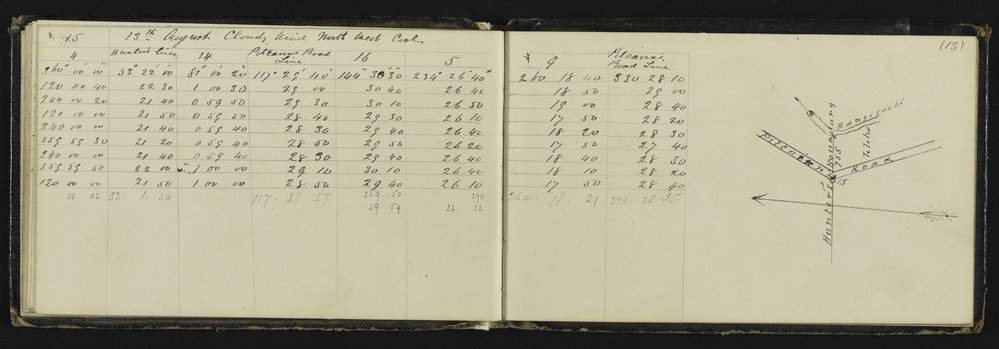 * 15 13th August Cloudy Wind North West Cool
4 Hunter's Line 14 Pitcairn's Road Line 16 5
360° 00' 00" 53° 22' 00" 81° 00' 20" 117° 29' 40" 144° 30' 30" 234° 26' 40"
120 00 40 22 30 1 00 30 29 00 30 40 26 40
240 00 20 21 40 0 59 50 29 30 30 10 26 50
120 00 00 21 50 0 59 50 28 40 29 30 26 10
240 00 00 21 40 0 59 40 28 30 29 40 26 40
359 59 30 21 20 0 59 40 28 50 29 50 26 20
240 00 00 21 40 0 59 40 28 30 29 40 26 40
359 59 50 22 00 1 00 00 29 10 30 10 26 40
120 00 00 21 50 1 00 00 28 50 29 40 26 10
00 02 117 . 28 57 269 . 50 290
29 . 59 26 . 32
(13)
* 9 Pitcairn's Road Line
260 18 40 330 28 10
18 50 29 00
19 00 28 40
17 50 28 40
18 20 28 30
17 50 27 40
18 40 28 30
18 10 28 20
17 50 28 40
260 . 18 . 21 330 . 28 . 25
Rangiriri
Pitcairn's Road
Hunter's Boundary
755
15